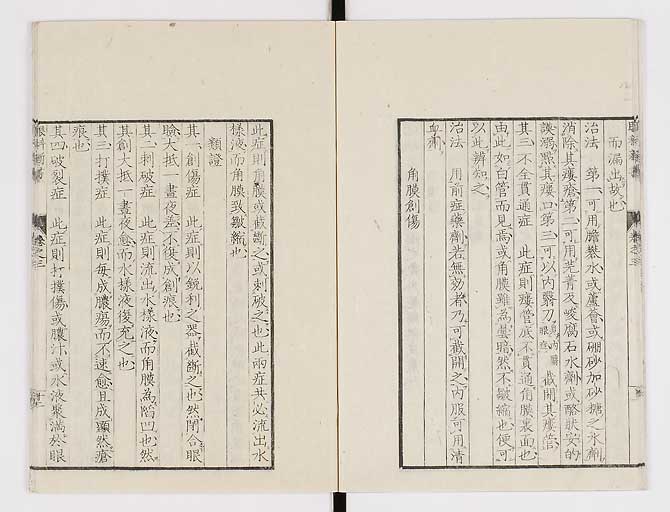 而漏出故也
治法　第一可用膽礬水或蘆薈或硼砂加砂糖之水劑
消除其瘻瘡第二可用芫菁及峻腐石水劑或酪狀安的
謨溺點其瘻口第三可以内翳刀截開其瘻管
其三不全貫通症　此症則瘻管底不貫通角膜裏面也
由此如白管而見焉或角膜雖為蒙暗然不皺縮也便可
以此辨知之
治法　用前症藥劑若無効者乃可截開之内服可用清
血劑
角膜創傷
此症則角膜或截斷之或刺破之也此兩症共必流出水
樣液而角膜致皺縮也
類證
其一創傷症　此症則以銳利之器截斷之也然閉合眼
瞼大抵一晝夜差不復成創痕也
其二刺破症　此症則流出水樣液而角膜為陷凹也然
其創大抵一晝夜愈而水樣液復充之也
其三打撲症　此症則每成膿瘍而不速愈且成顯然瘡
痕也
其四破裂症　此症則打撲傷或膿汁或水液聚滿於眼